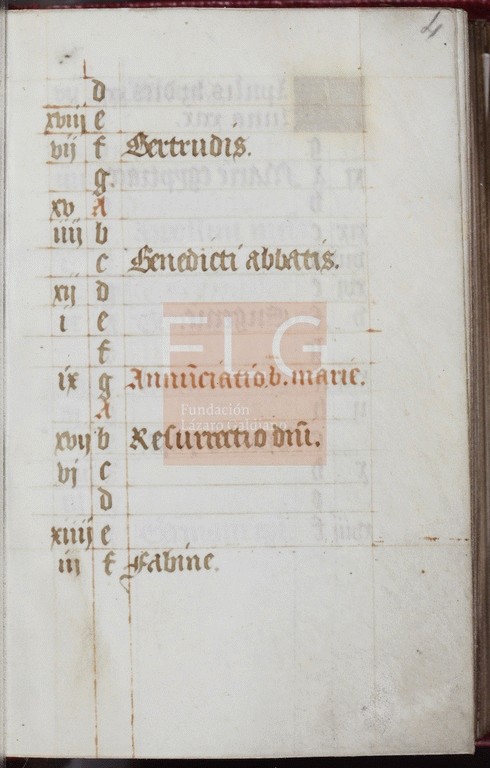 4
d
xviij e
vij f Gertrudis.
g.
xv A
iiij b
c Benedicti abbatis.
xij d
i e
f
ix g Annũciatio b. marie.
A
xvij b Resurrectio dñi.
vj c
d
xiiij e
iij f Sabine.
FLG
Fundación
Lázaro Galdiano